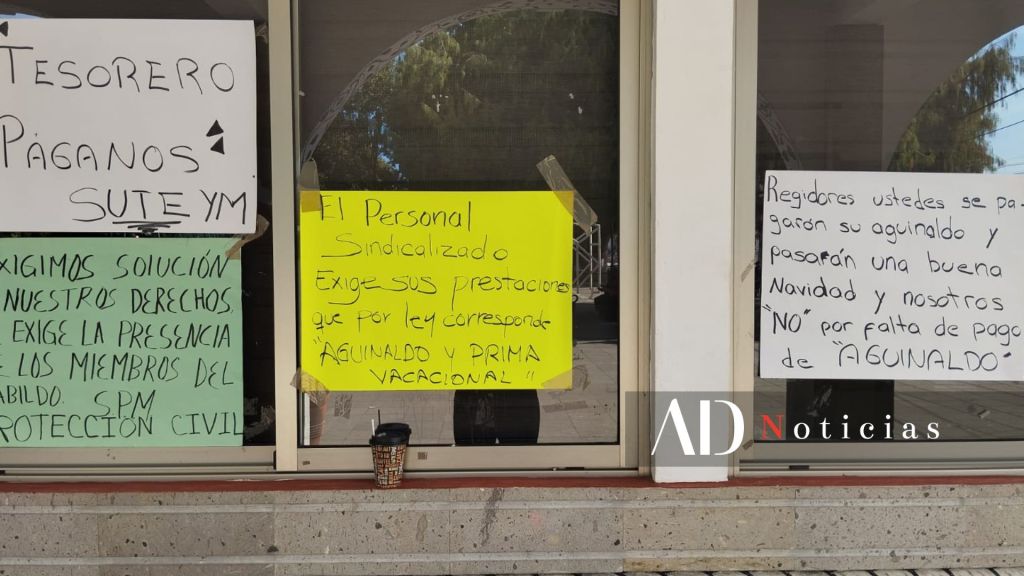 TESORERO
PÁGANOS
SUTEYM
EXIGIMOS SOLUCIÓN
NUESTROS DERECHOS.
EXIGE LA PRESENCIA
LOS MIEMBROS DEL
ABILDO. SPM
ROTECCIÓN CIVIL
El Personal
Sindicalizado
Exige sus prestaciones
que por ley corresponde
"AGUINALDO Y PRIMA
VACACIONAL"
Regidores ustedes se pa-
garon su aguinaldo y
pasarán una buena
Navidad y nosotros
"NO" por falta de pago
de "AGUINALDO"
AD Noticias